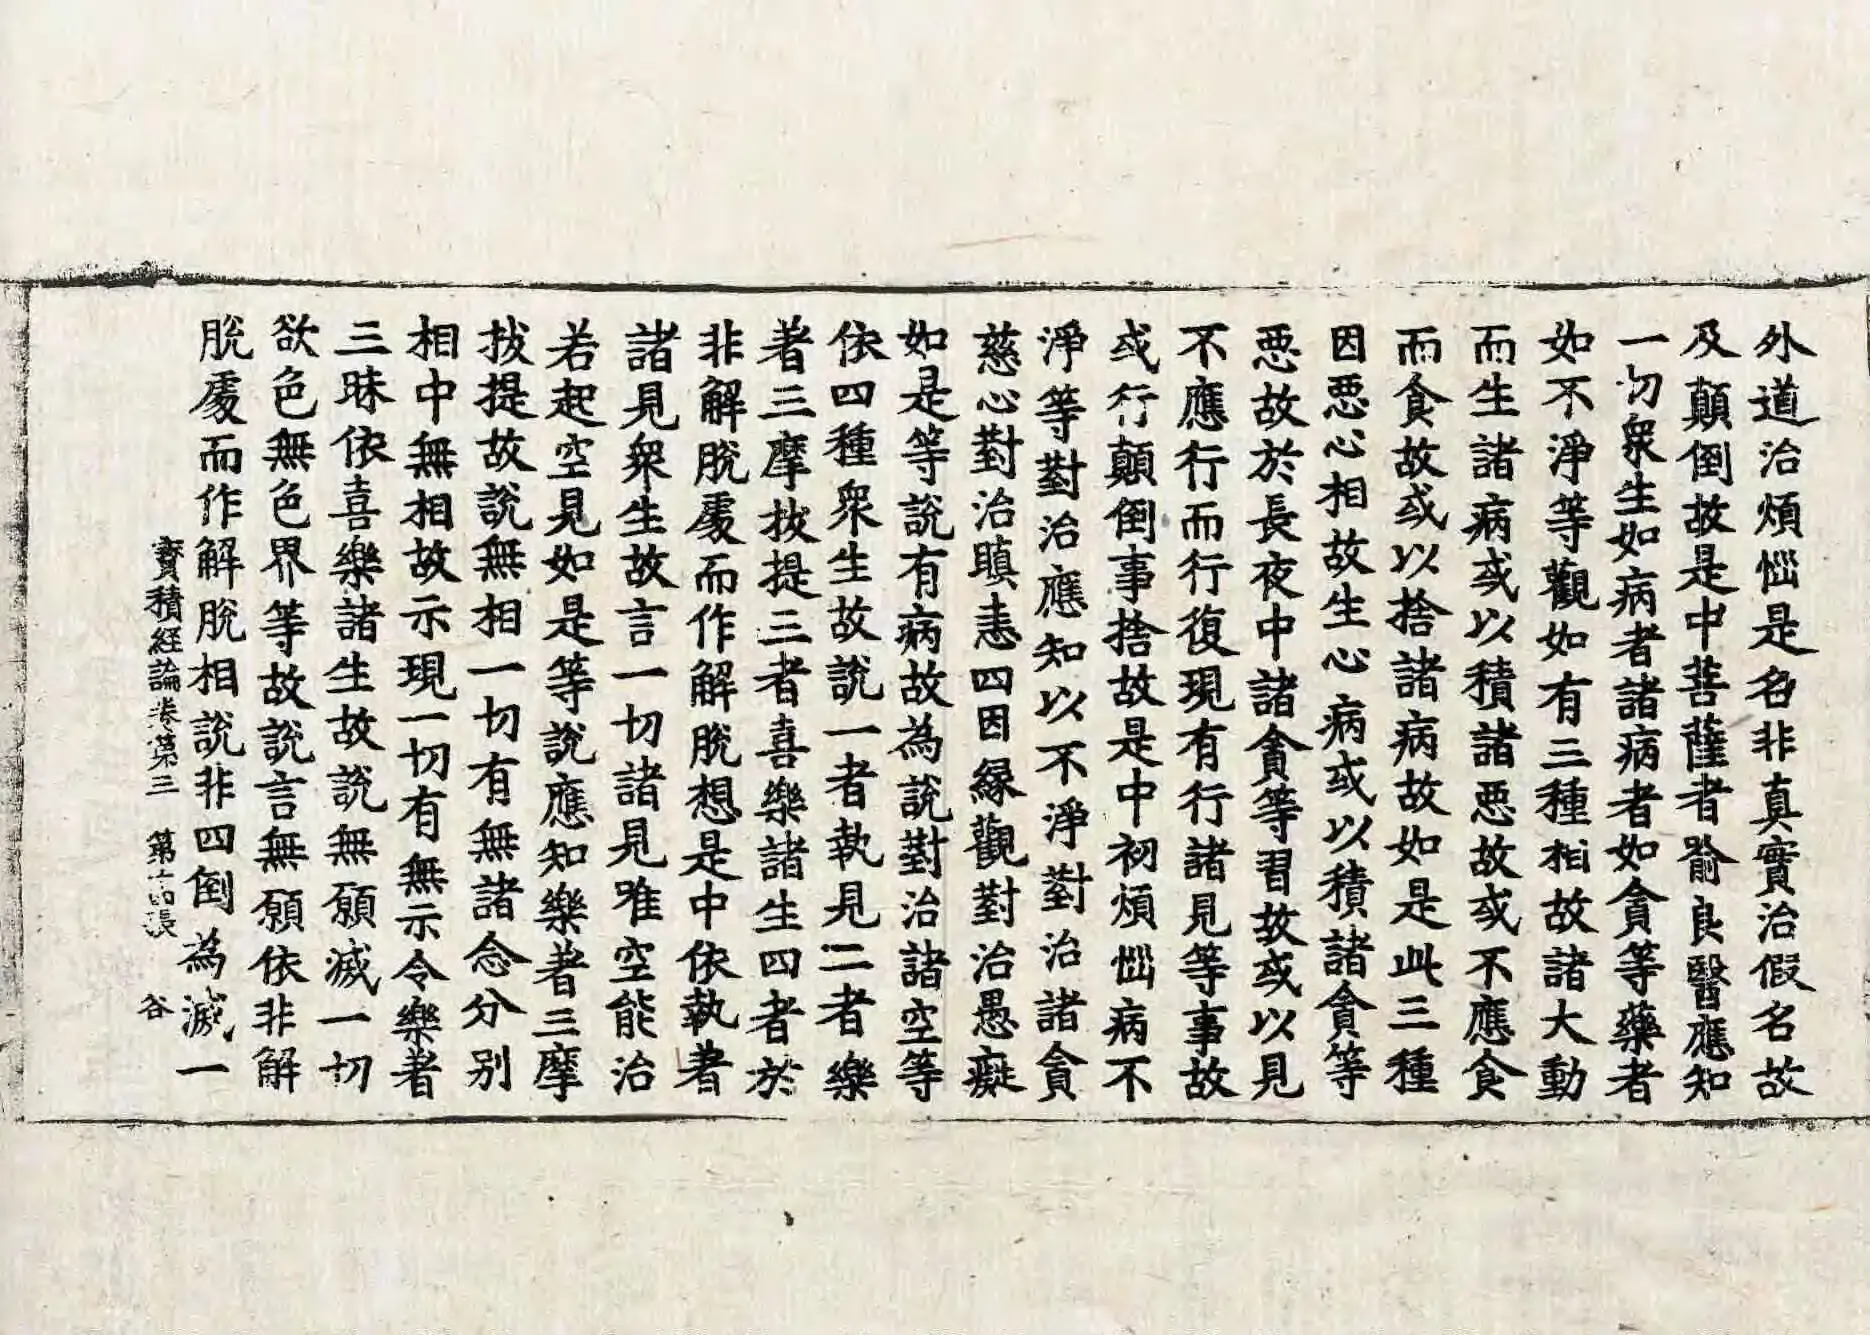 外道治煩惱是名非真實治假名故
及顛倒故是中菩薩者喻良醫應知
一切衆生如病者諸病者如貪等藥者
如不淨等觀如有三種相故諸大動
而生諸病或以積諸惡故或不應食
而食故或以捨諸病故如是此三種
因惡心相故生心病或以積諸貪等
惡故於長夜中諸貪等習故或以見
不應行而行復現有行諸見等事故
或行顛倒事捨故是中初煩惱病不
淨等對治應知以不淨對治諸貪
慈心對治瞋恚四因緣觀對治愚癡
如是等說有病故為說對治諸空等
依四種衆生故說一者執見二者樂
著三摩拔提三者喜樂諸生四者於
非解脫處而作解脫想是中依執著
諸見衆生故言一切諸見唯空能治
若起空見如是等說應知樂著三摩
拔提故說無相一切有無諸念分別
相中無相故示現一切有無示令樂著
三昧依喜樂諸生故說無願滅一切
欲色無色界等故說言無願依非解
脫處而作解脫相說非四倒為滅一
寶積經論卷第三　第十四張　谷